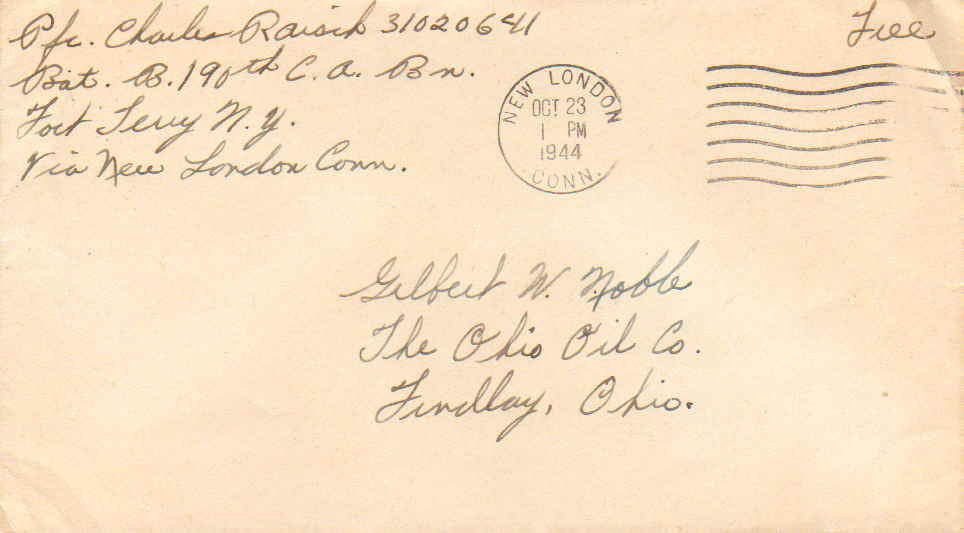 Pfc. Charles Raisch 31020641
Free
Bat. B. 190th C. A. Bn.
Fort Terry N. Y.
Via New London Conn.
NEW LONDON
OCT 23
1 PM
1944
CONN.
Gilbert W. Noble
The Ohio Oil Co.
Findlay, Ohio.